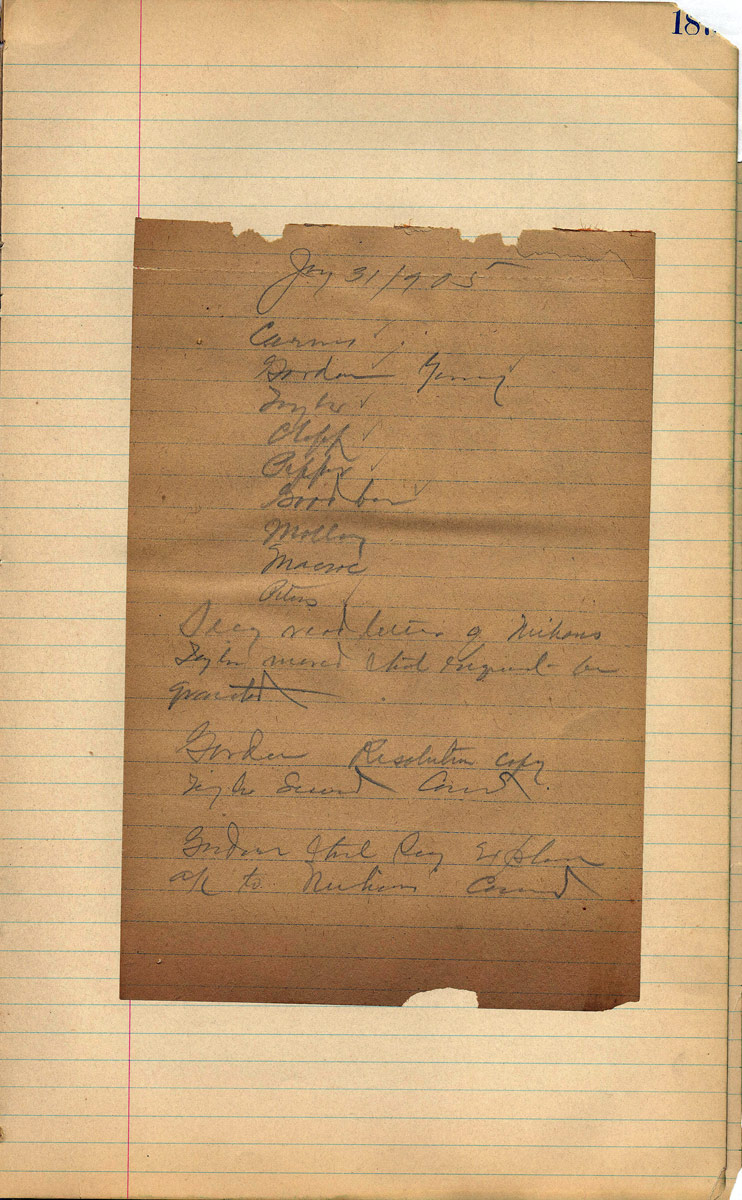 18
Jay 31/905
Cairns
Gordon Young
Taylor
Clopp
Pepper
Goodbar
Molloy
Macrae
Peters
Secy read letter of
Taylor moved that request be
granted
Gordon Resolution copy
Taylor Second Carried
Gordon that Secy Explain
to Carried